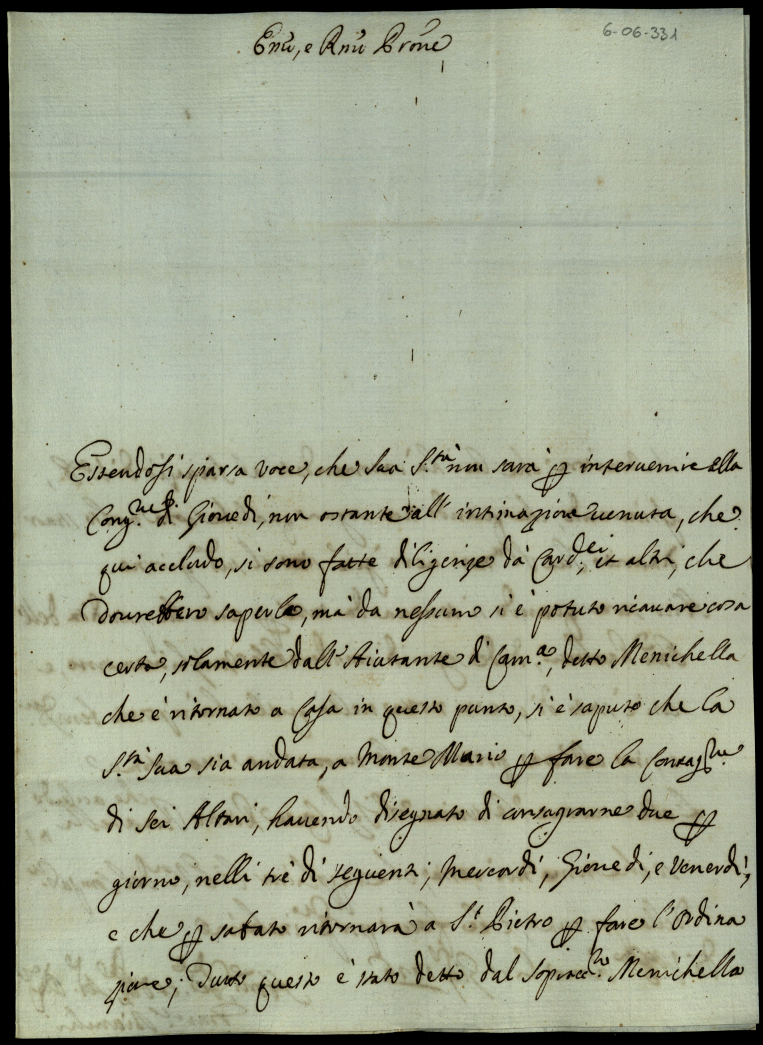 6-06-331
Em̃o, e Rm̃o Prone
Essendosi sparsa voce, che Sua S.tà non sarà ꝑ intervenire alla
Cong.ne di Giovedì, non ostante all' intimazione venuta, che
qui accludo, si sono fatte diligenze da Card.li, et altri, che
dovrebbero saperlo, mà da nessuno si è potuto ricavare cosa
certa, solamente dall' Aiutante di Cam.a, detto Menichella
che è ritornato a Casa in questo punto, si è saputo che la
S.tà Sua sia andata, a Monte Mario ꝑ fare la Consag.ne
di sei Altari, havendo disegnato di consagrarne due ꝑ
giorno, nelli trè dì seguenti; Mercordì, Giovedì, e Venerdì,
e che ꝑ sabato ritornarà a S.t Pietro ꝑ fare l'Ordina
zione; Tutto questo è stato detto dal sopracc.to Menichella